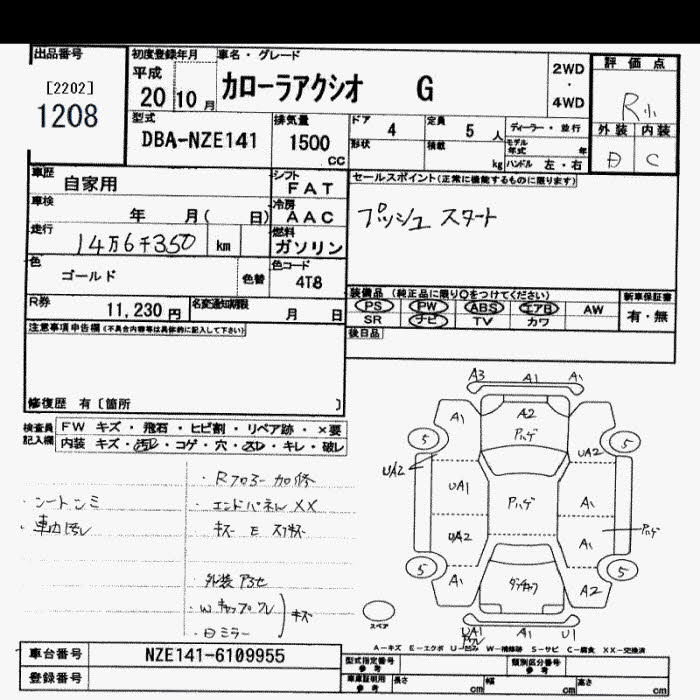 出品番号
[2202]
1208
初度登録年月
平成
20 10 月
車名・グレード
カローラアクシオ G
2WD
・
4WD
評価点
R小
外装 内装
D C
型式
DBA-NZE141
排気量
1500
CC
ドア 4
定員 5 人
形状
積載 kg
ディーラー・並行
モデル年式 年
ハンドル 左・右
車歴
自家用
シフト
FAT
車検
年 月( 日)
冷房
AAC
走行
14万6千350 km
燃料
ガソリン
色
ゴールド
色替
色コード
4T8
セールスポイント(正常に機能するものに限ります)
プッシュ スタート
装備品 (純正品に限り○をつけてください)
PS PW ABS エアB AW
SR ナビ TV カワ
新車保証書
有・無
後日品
R券
11,230 円
名変通知期限
月 日
注意事項申告欄(不具合内容等は具体的に記入して下さい)
修復歴 有〔箇所 〕
検査員
記入欄
FW キズ・飛石・ヒビ割・リペア跡・×要
内装 キズ・汚レ・コゲ・穴・スレ・キレ・破レ
・シートシミ
・車内汚レ
・Rフロアー加修
・エンドパネルXX
キズ E
外装
・Wキャップワレ
キズ
・Dミラー
A3 A1 A1
A1 A2
ハゲ
5 5
UA2 UA2
UA1 ハゲ A1
UA2 A1 ハゲ
5 5
A1 A2
UA1 A1 U1
スペア
A-キズ E-エクボ U-凹み W-補修跡 S-サビ C-腐食 XX-交換済
車台番号
NZE141-6109955
登録番号
型式指定番号
参考
類別区分番号
参考
車庫証明用
参考
長さ cm
幅 cm
高さ cm